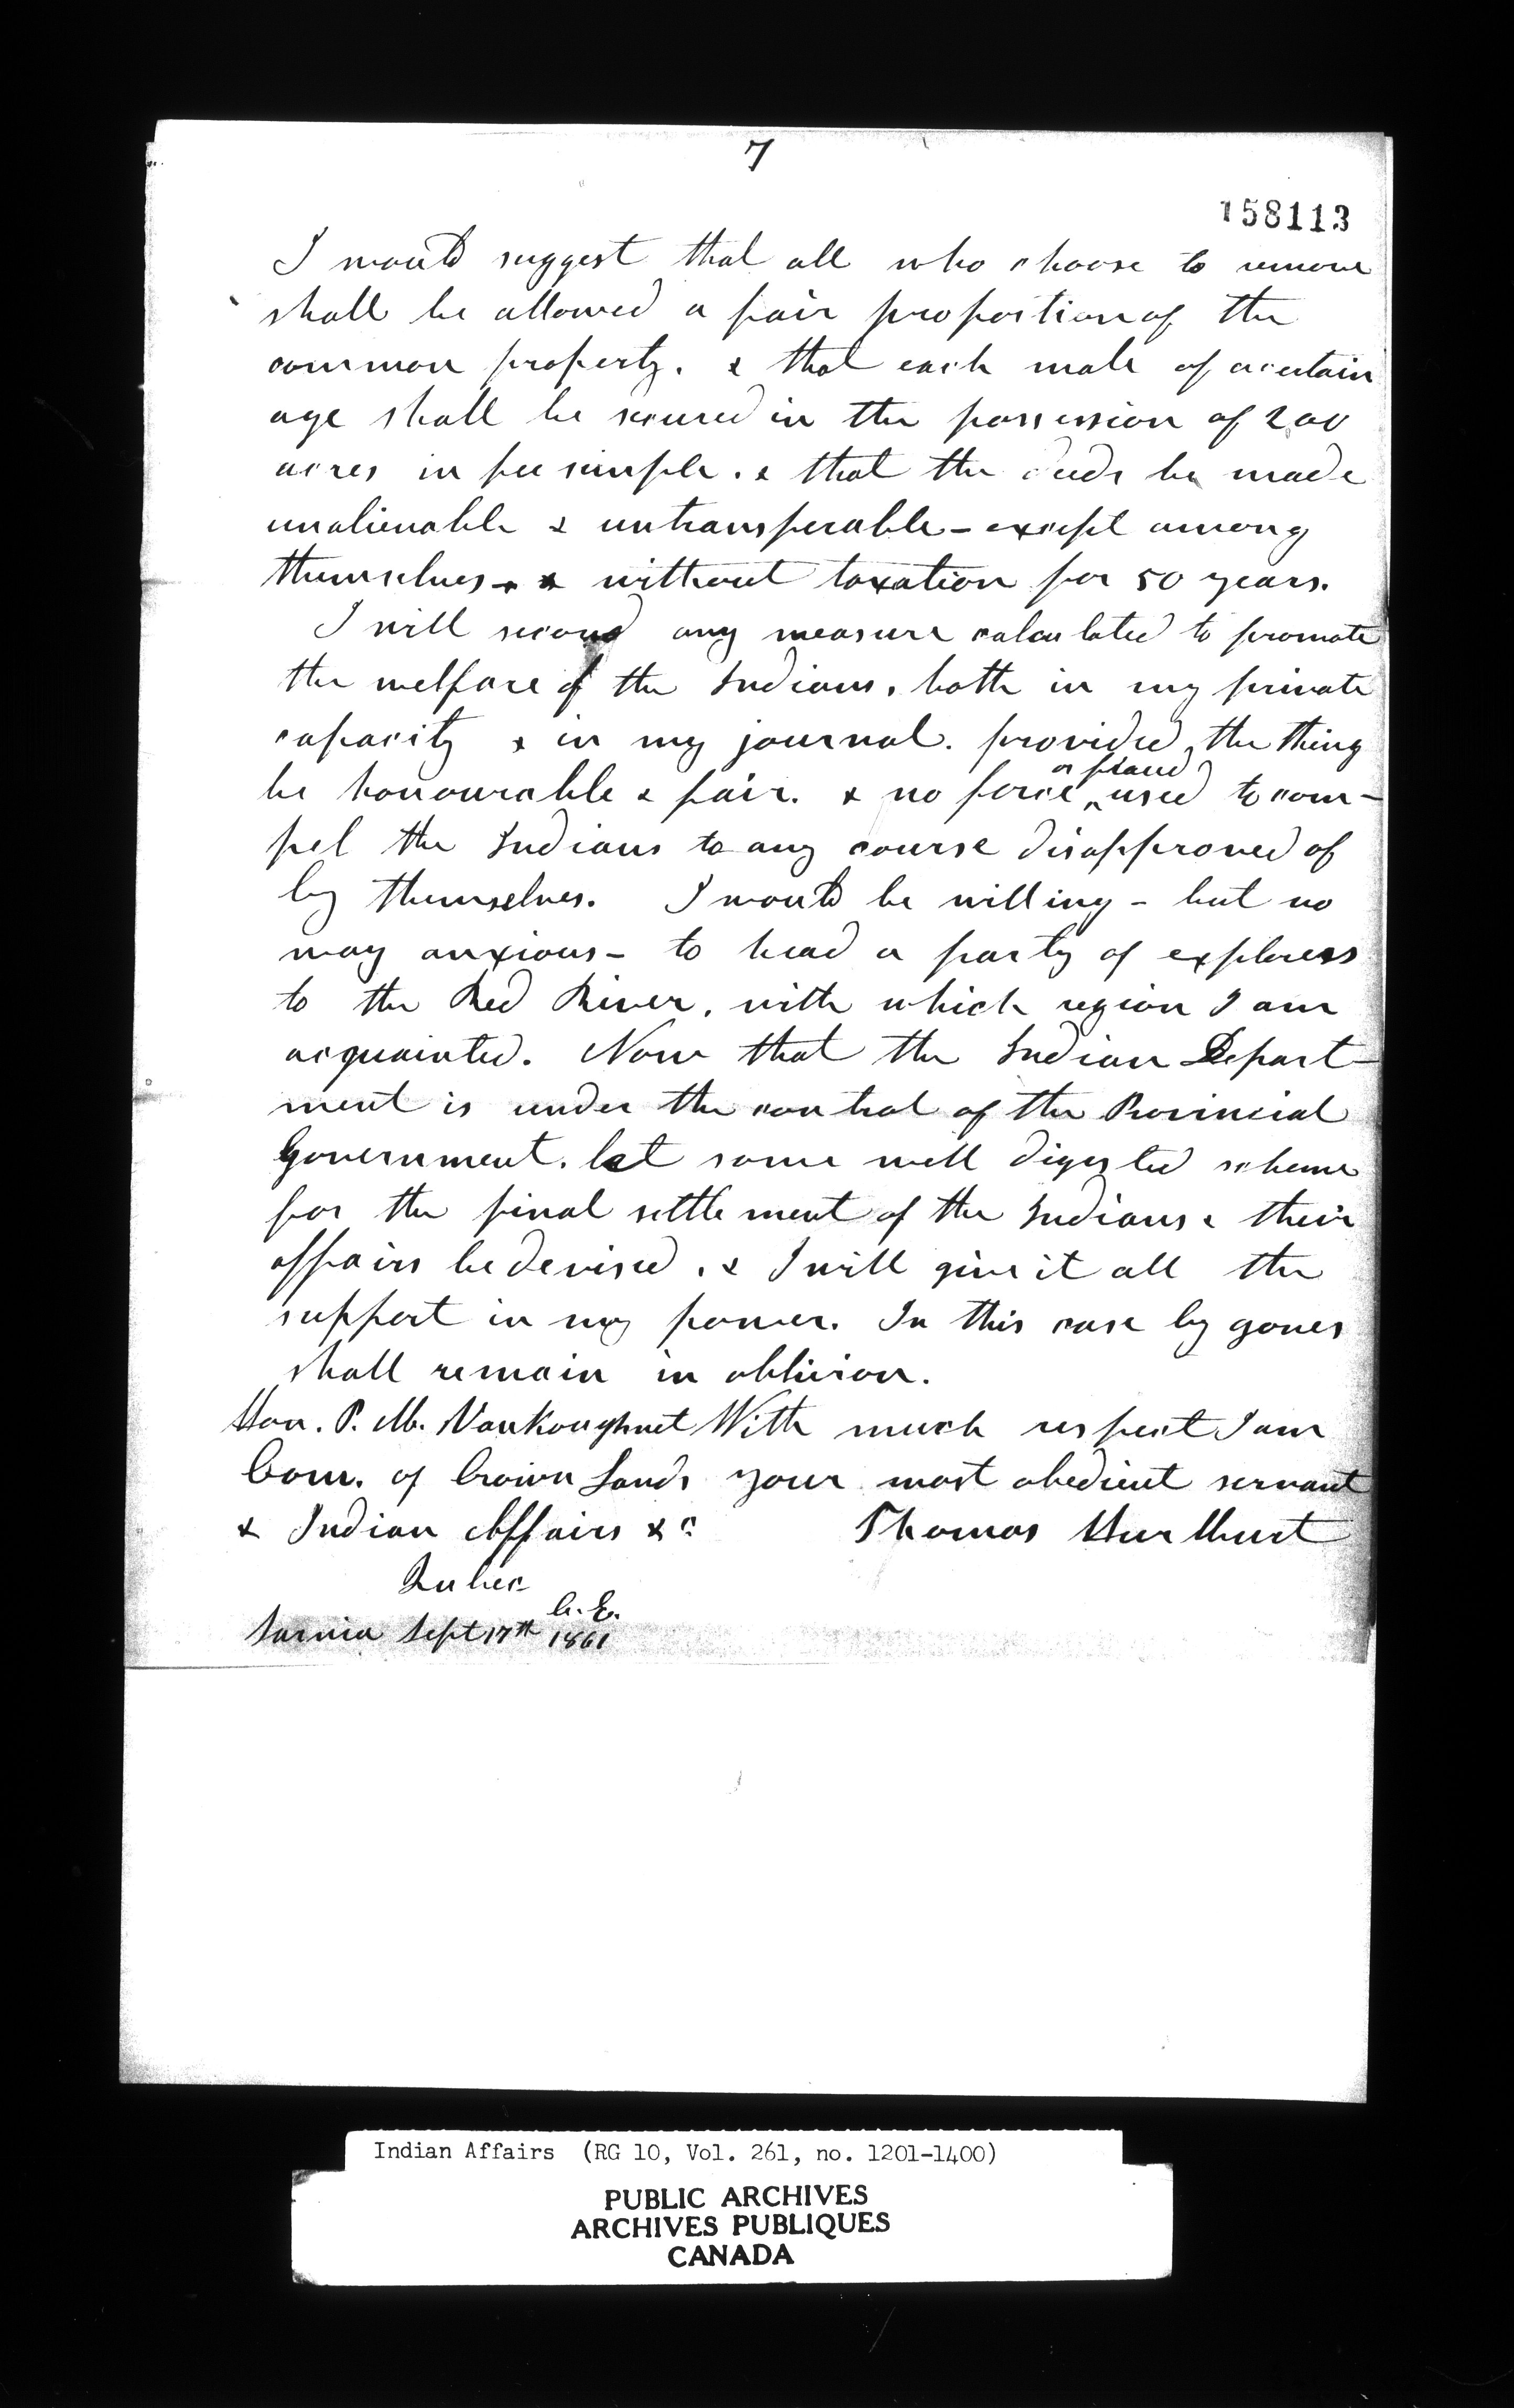 7
158113
I would suggest that all who choose to remove
shall be allowed a fair proportion of the
common property. & that each male of a certain
age shall be secured in the possession of 200
acres in fee simple. & that the deeds be made
unalienable & untransferable - except among
themselves - & without taxation for 50 years.
I will second any measure calculated to promote
the welfare of the Indians, both in my private
capacity & in my journal. provided, the thing
or fraud
be honourable & fair. & no force ^ used to com-
pel the Indians to any course disapproved of
by themselves. I would be willing - but no
way anxious - to head a party of explorers
to the Red River, with which region I am
acquainted. Now that the Indian Depart-
ment is under the control of the Provincial
Government. let some well digested scheme
for the final settlement of the Indians & their
affairs be devised. & I will give it all the
support in my power. In this case by gones
shall remain in oblivion.
Hon. P. M. VanKoughnet With much respect I am
Com. of Crown Lands your most obedient servant
& Indian Affairs &c Thomas Hurlburt
Quebec
C. E.
Sarnia Sept 17th 1861
Indian Affairs (RG 10, Vol. 261, no. 1201-1400)
PUBLIC ARCHIVES
ARCHIVES PUBLIQUES
CANADA